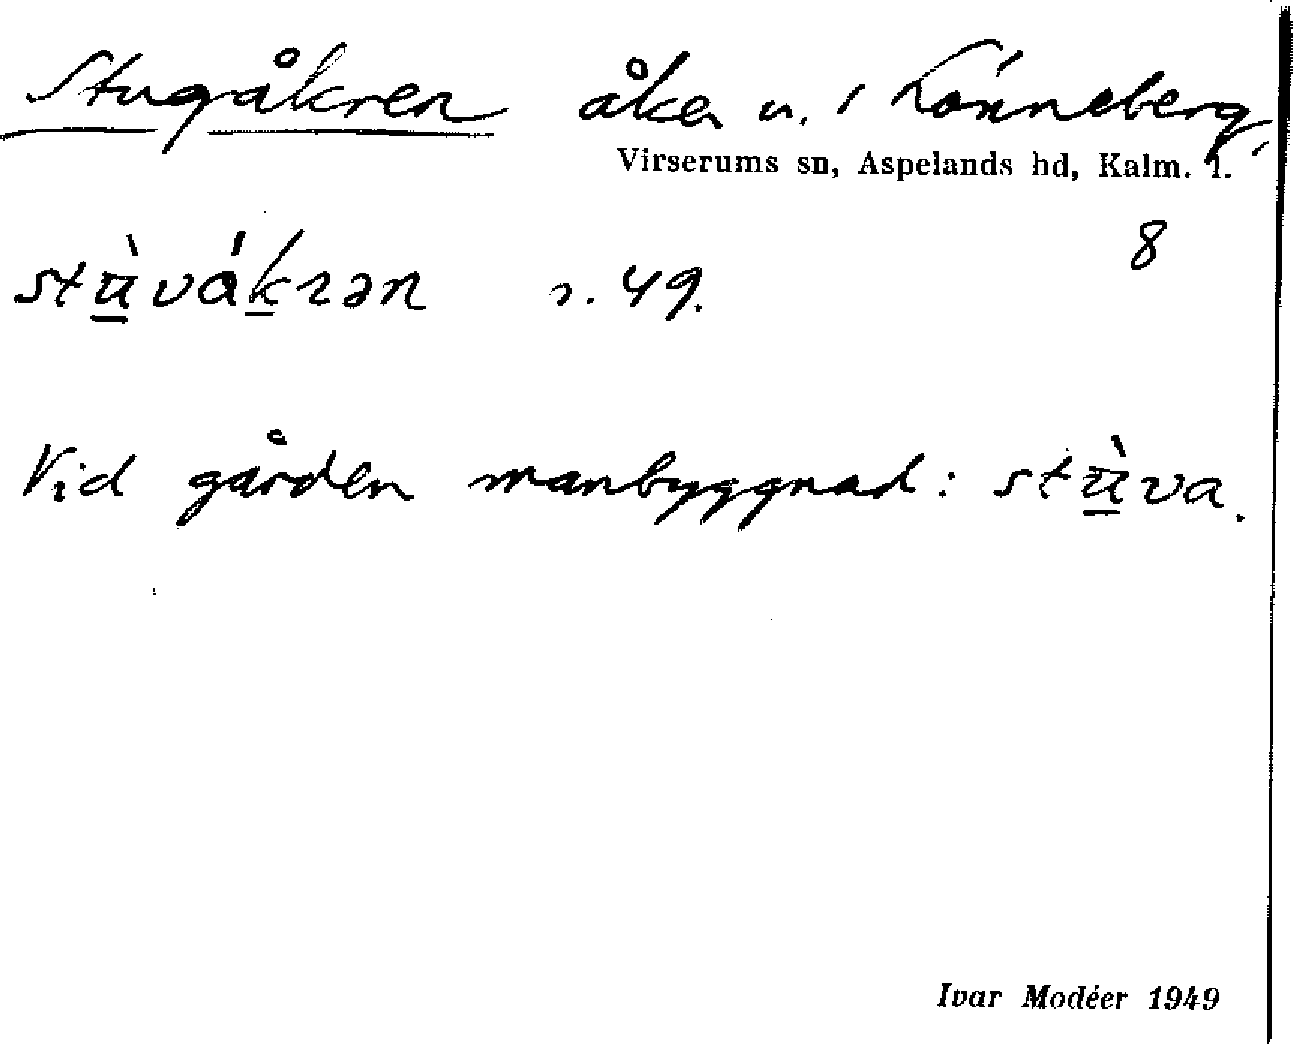 Stugåkren åker n. i Lönneberg,
Virserums sn, Aspelands hd, Kalm. l.
8
stù̲vák̲rən s. 49.
Vid gården manbyggnad: stù̲va.
Ivar Modéer 1949